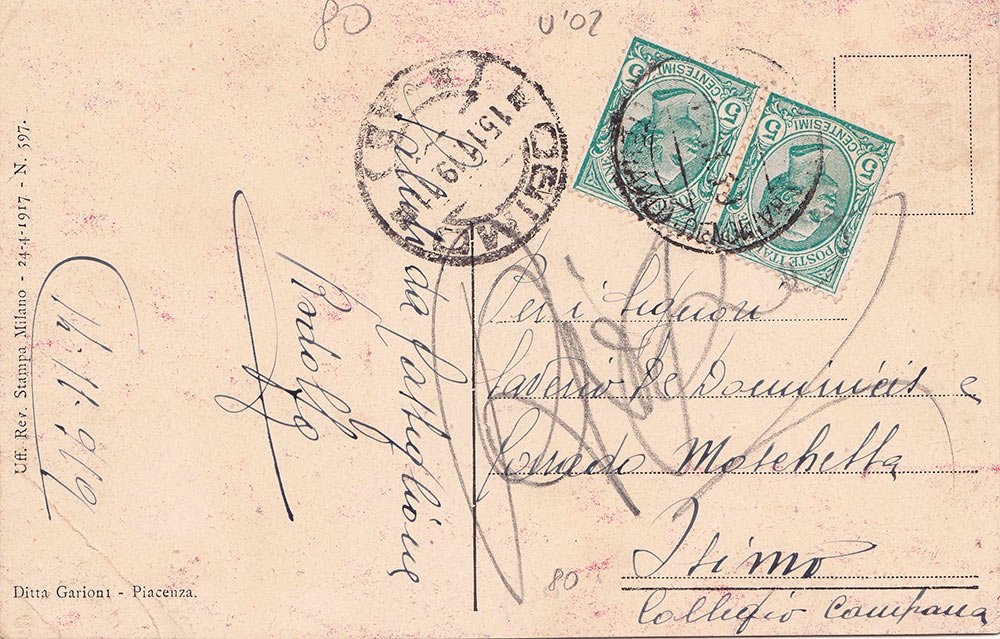 80
U'02
5 CENTESIMI 5
POSTE ITALIANE
5 CENTESIMI 5
OSIMO
15 11 19
Uff. Rev. Stampa Milano - 24-4-1917 - N. 597.
Saluti da Castiglione
Rodolfo
Per i Signori
Saverio De Dominicis e
Corrado Moschetta
Osimo
Collegio Campana
80
Ditta Garioni - Piacenza.